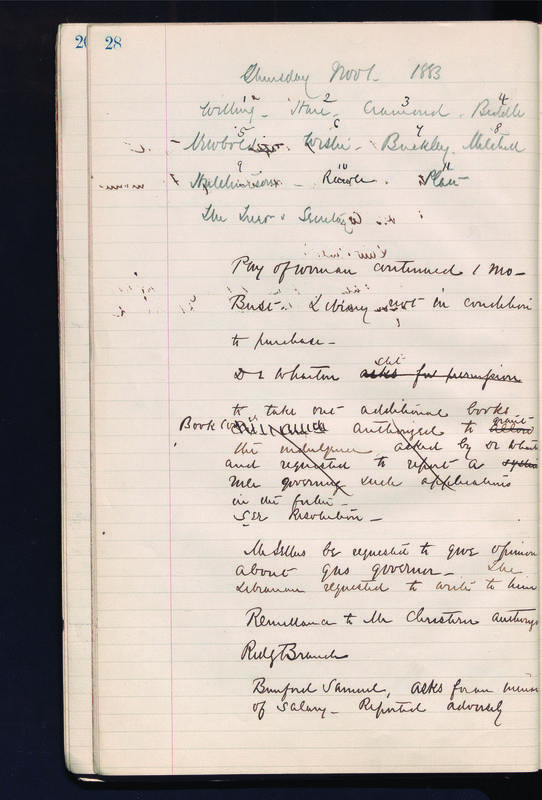 28
Thursday Nov 1. 1883
1 2 3 4
Willing - Hare - Cramond - Biddle
5 6 7 8
Newbold - Wister - Buckley - Mitchell
9 10 11
Hutchinson - Rawle - Platt
The Treas & Secretary
Pay of woman continued 1 mo -
Bust - Library not in condition
to purchase -
Dr Wharton asks for permission
to take out additional books
Book Com authorized to grant allow
the indulgence asked by Dr Whart
and requested to report a system
rule governing such applications
in the future -
See Resolution -
Mr Sellers be requested to give opinion
about gas governor - The
Librarian requested to write to him
Remittance to Mr Christern authory
Ridg Branch
Bunford Samuel, asks for an
of Salary - Reported adversely